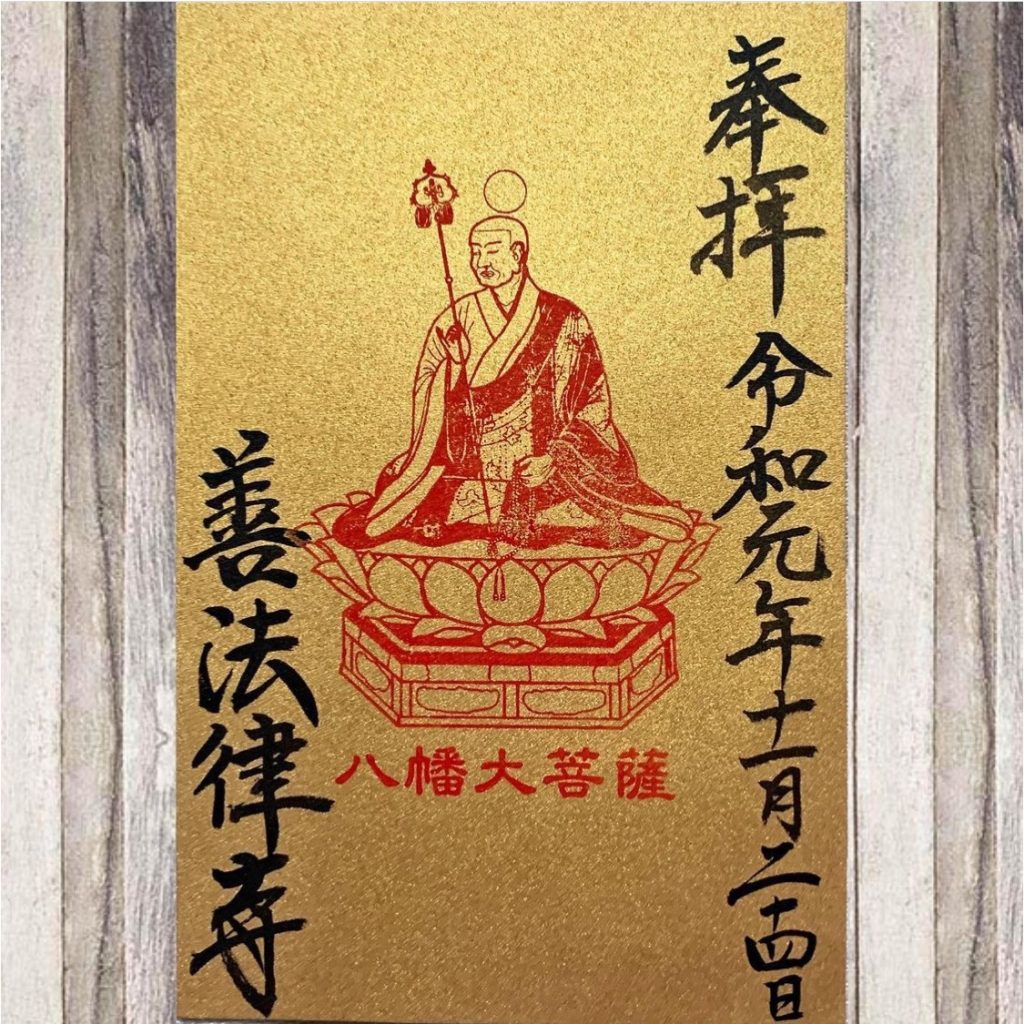 奉拝 令和元年十一月二十四日
八幡大菩薩
善法律寺